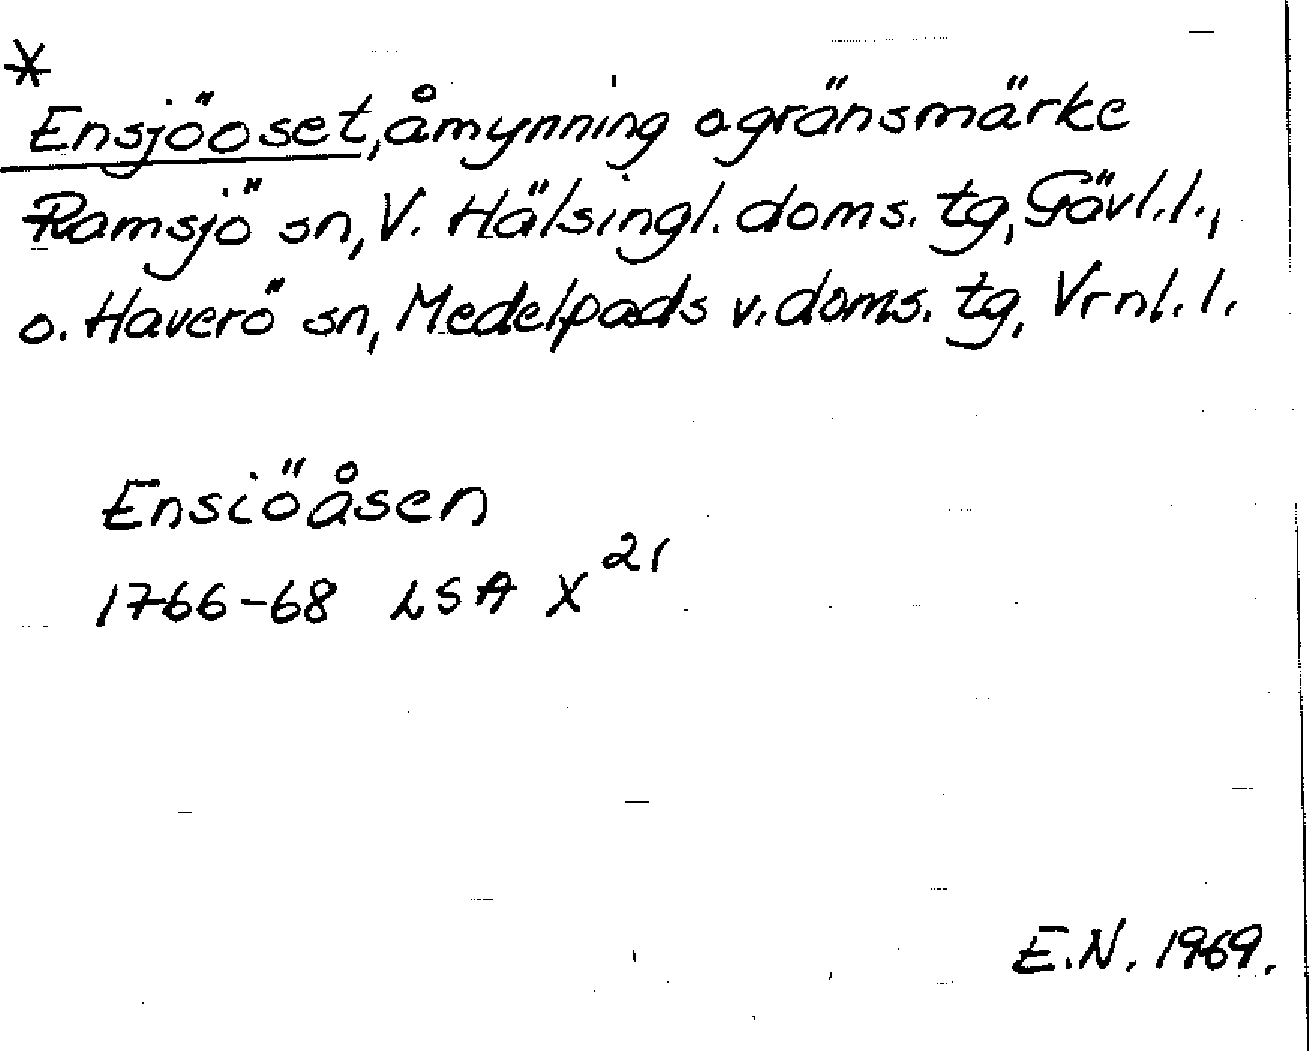 *
Ensjöoset, åmynning o gränsmärke
Ramsjö sn, V. Hälsingl. doms. tg, Gävl.l.,
o. Haverö sn, Medelpads v. doms. tg, Vrnl. l.
Ensiöåsen
1766-68 LSA X 21
E.N. 1969.